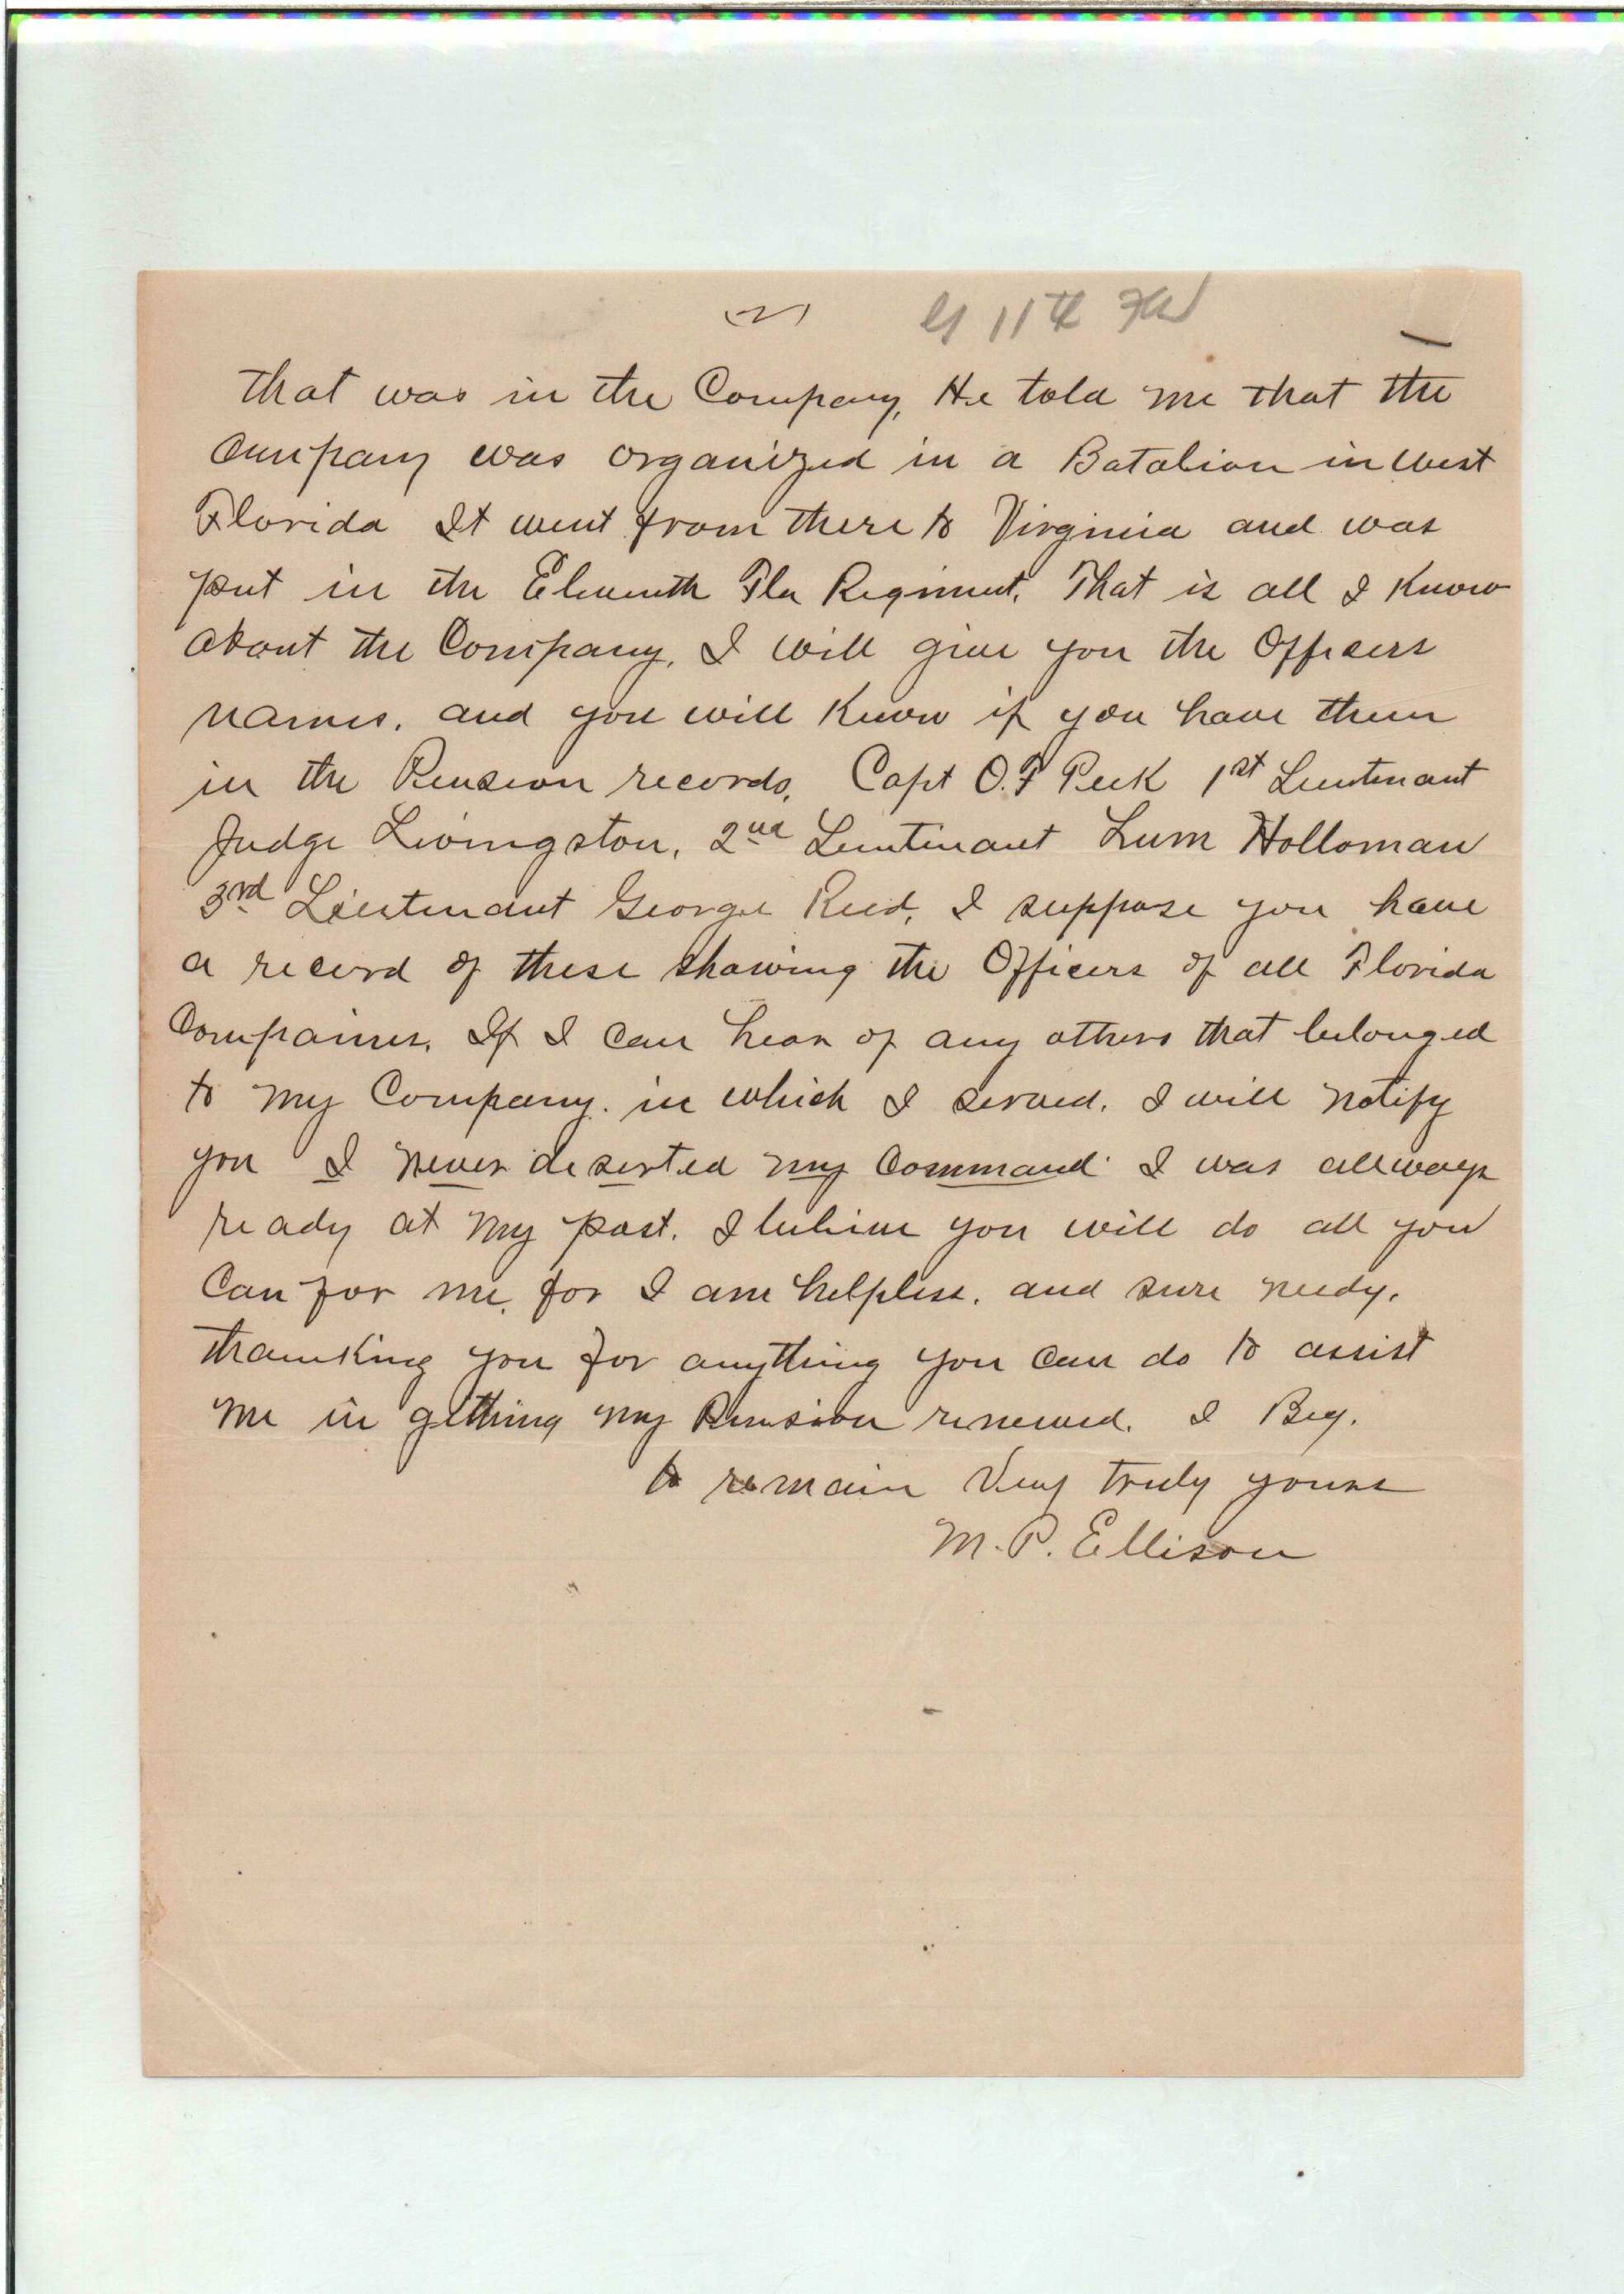 (2) G 11th Fla
that was in the Company, He told me that the
Company was organized in a Batalion in West
Florida It went from there to Virginia and was
put in the Eleventh Fla Regiment. That is all I Know
about the Company. I will give you the Officers
names. and you will Know if you have them
in the Pension records. Capt O.F Peek 1st Lieutenant
Judge Livingston, 2nd Lieutinant Lum Holloman
3rd Lieutenant George Reed, I suppose you have
a record of these showing the Officers of all Florida
Companies. If I can hear of any others that belonged
to my Company. in which I served. I will notify
you I never deserted my Command I was allways
ready at my post. I believe you will do all you
Can for me, for I am helpless. and sure needy.
thanking you for anything you can do to assist
me in getting my Pension renewed. I Beg.
to remain Very truly yours
M. P. Ellison